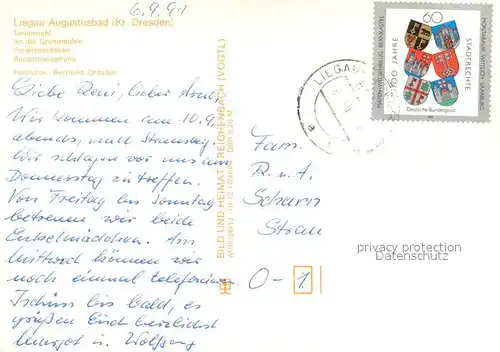 6.9.91
Liegau-Augustusbad (Kr. Dresden)
Teilansicht
An der Grundmühle
Forellenschänke
Fotofixier Berthold Dresden
Liebe Reni, lieber Arnd
Wir kommen am 10.9.
abends, nach Strausberg.
Wir schlagen vor uns am
Donnerstag zu treffen.
Von Freitag bis Sonntag
betreuen wir beide
Enkelmädchen. Am
Mittwoch können wir
noch einmal telefonieren.
Tschüss bis bald, es
grüßen Euch herzlichst
u. Wolfgang
BILD UND HEIMAT REICHENBACH (VOGTL)
LIEGAU-
60
500 JAHRE
STADTRECHTE
MAYEN WELSCHBILLIG BERNKASTEL
MONTABAUR WITTLICH SAARBURG
Deutsche Bundespost
Fam.
R. u. A.
O-1
privacy protection
Datenschutz